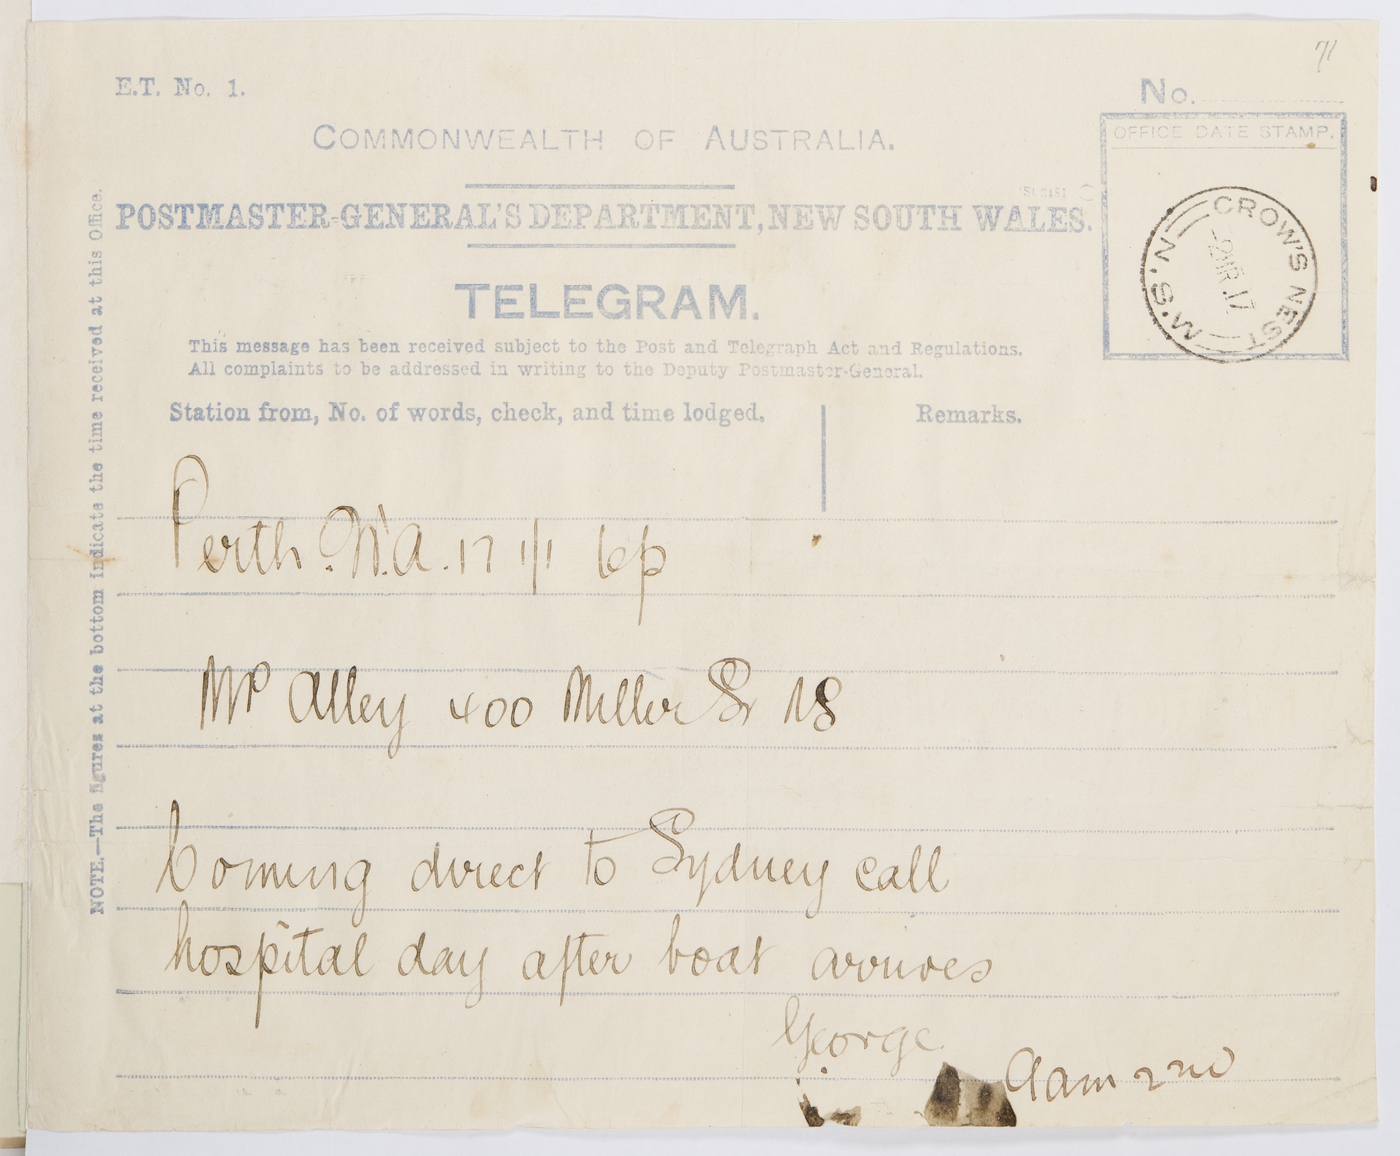 71
E.T. No. 1.
No.
COMMONWEALTH OF AUSTRALIA.
OFFICE DATE STAMP.
POSTMASTER-GENERAL'S DEPARTMENT, NEW SOUTH WALES.
CROW'S NEST
N.S.W
TELEGRAM.
This message has been received subject to the Post and Telegraph Act and Regulations.
All complaints to be addressed in writing to the Deputy Postmaster-General.
Station from, No. of words, check, and time lodged.
Remarks.
NOTE.—The figures at the bottom indicate the time received at this Office.
Perth. W.A. 17 1/1 6p
Mr Alley 400 Miller St NS
Coming direct to Sydney call
hospital day after boat arrives
George
9am 2nd